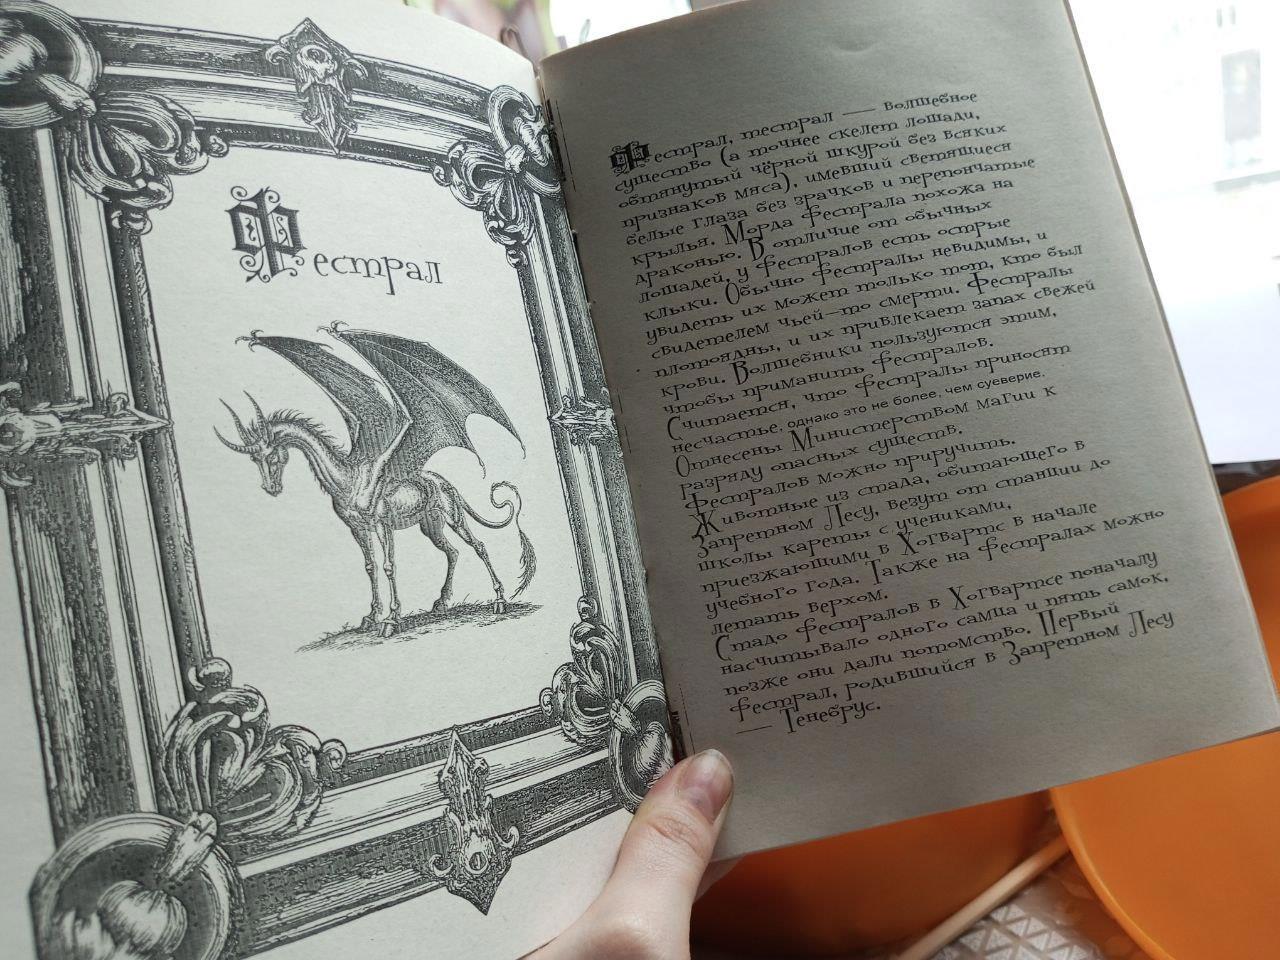 Фестрал
Фестрал, тестрал — волшебное
существо (а точнее скелет лошади,
обтянутый чёрной шкурой без всяких
признаков мяса), имевший светящиеся
белые глаза без зрачков и перепончатые
крылья. Морда фестрала похожа на
драконью. В отличие от обычных
лошадей, у фестралов есть острые
клыки. Обычно фестралы невидимы, и
увидеть их может только тот, кто был
свидетелем чьей-то смерти. Фестралы
плотоядны, и их привлекает запах свежей
крови. Волшебники пользуются этим,
чтобы приманить фестралов.
Считается, что фестралы приносят
несчастье, однако это не более, чем суеверие.
Отнесены Министерством магии к
разряду опасных существ.
Фестралов можно приручить.
Животные из стада, обитающего в
Запретном Лесу, везут от станции до
школы кареты с учениками,
приезжающими в Хогвартс в начале
учебного года. Также на фестралах можно
летать верхом.
Стадо фестралов в Хогвартсе поначалу
насчитывало одного самца и пять самок,
позже они дали потомство. Первый
фестрал, родившийся в Запретном Лесу
— Тенебрус.